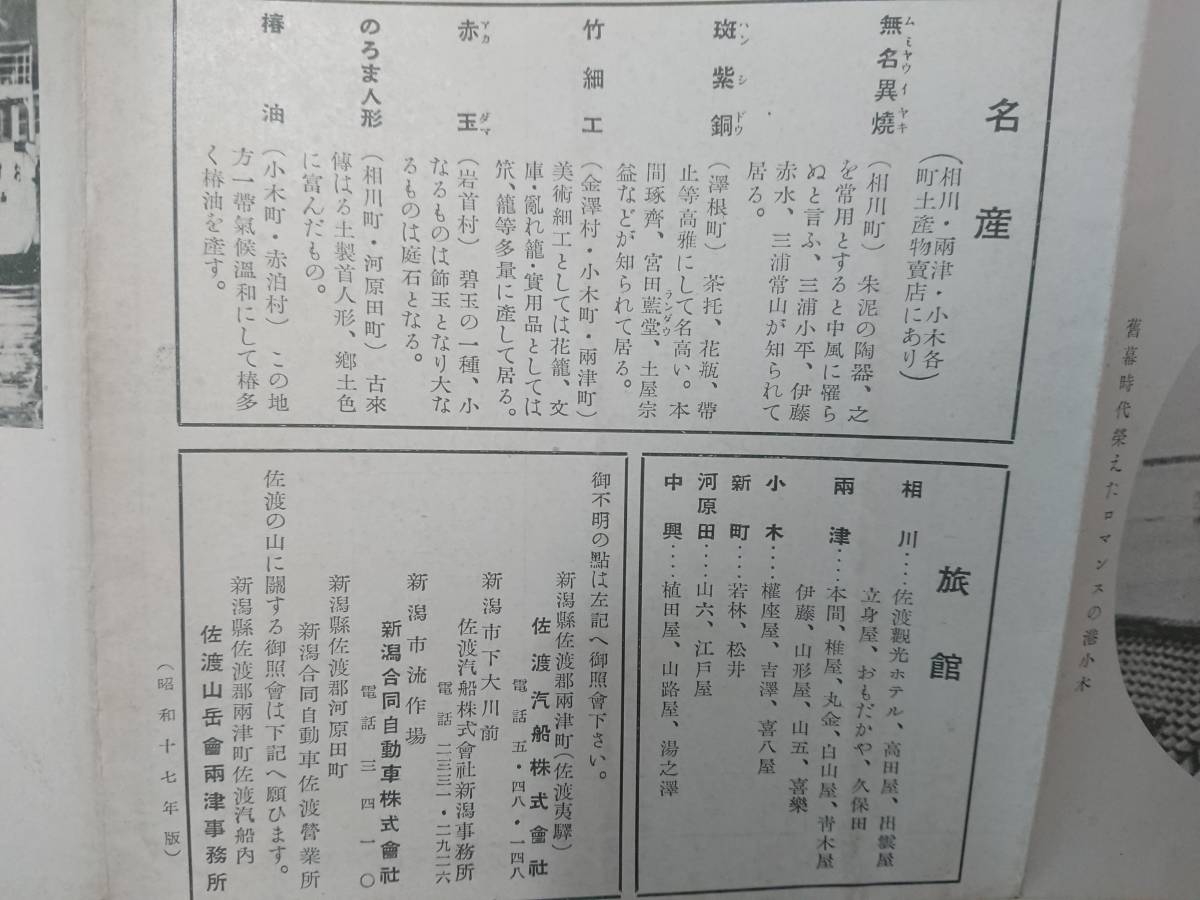 舊幕時代榮えたロマンスの港小木
名産
(相川・兩津・小木各
町土産物賣店にあり)
無名異燒
ムミヤウイヤキ
(相川町) 朱泥の陶器、之
を常用とすると中風に罹ら
ぬと言ふ、三浦小平、伊藤
赤水、三浦常山が知られて
居る。
斑紫銅
ハンシドウ
(澤根町) 茶托、花瓶、帶
止等高雅にして名高い。本
間琢齊、宮田藍堂、土屋宗
ランダウ
益などが知られて居る。
竹細工
(金澤村・小木町・兩津町)
美術細工としては花籠、文
庫・亂れ籠・實用品としては
笊、籠等多量に產して居る。
赤玉
アカダマ
(岩首村) 碧玉の一種、小
なるものは飾玉となり大な
るものは庭石となる。
のろま人形
(相川町・河原田町) 古來
傳はる土製首人形、鄕土色
に富んだもの。
椿油
(小木町・赤泊村) この地
方一帶氣候溫和にして椿多
く椿油を產す。
旅館
相川‥‥佐渡觀光ホテル、高田屋、出雲屋
立身屋、おもだかや、久保田
兩津‥‥本間、椎屋、丸金、白山屋、靑木屋
伊藤、山形屋、山五、喜樂
小木‥‥權座屋、吉澤、喜八屋
新町‥‥若林、松井
河原田‥‥山六、江戸屋
中興‥‥植田屋、山路屋、湯之澤
御不明の點は左記へ御照會下さい。
新潟縣佐渡郡兩津町(佐渡夷驛)
佐渡汽船株式會社
電話 五・四八・一四八
新潟市下大川前
佐渡汽船株式會社新潟事務所
電話 二三三一・二九二六
新潟市流作場
新潟合同自動車株式會社
電話 三四一〇
新潟縣佐渡郡河原田町
新潟合同自動車佐渡營業所
佐渡の山に關する御照會は下記へ願ひます。
新潟縣佐渡郡兩津町佐渡汽船內
佐渡山岳會兩津事務所
(昭和十七年版)